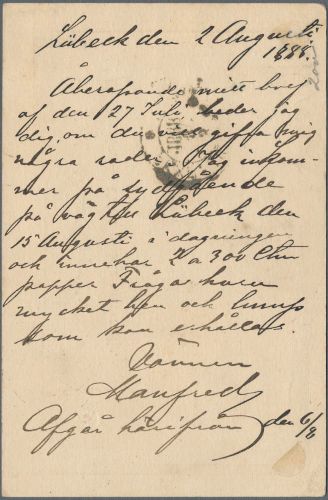 Lübeck den 2 Augusti
1888.
Åberopande mitt bref
af den 27 Juli beder jag
dig om du vill giffa mig
några rader. Jag inkom-
mer på sydgående
på vägtill Lübeck den
15 Augusti i dagningen
och innehar 2 a 300 Ctm
papper Fråga huru
mycket ben och lump
som kan erhållas.
Vännen
Manfred
Afgår härifrån den 6/8